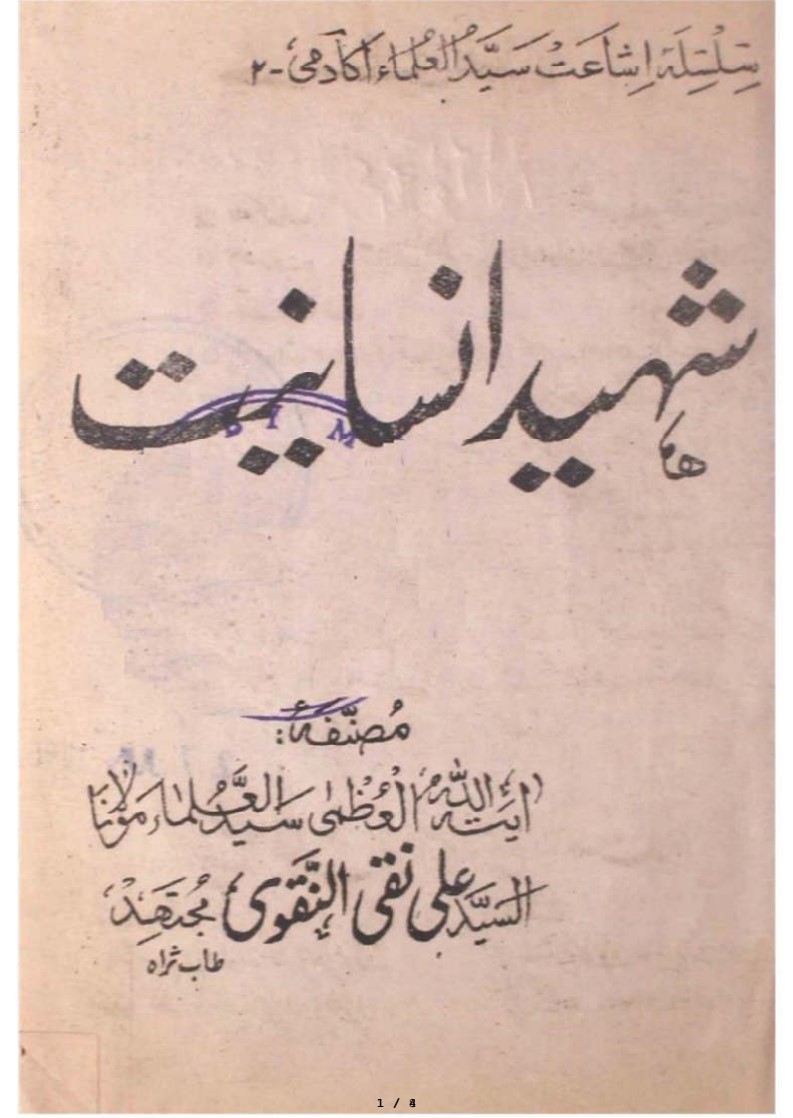 سِلْسِلَۂ اِشَاعَتْ سَیَّدُ الْعُلَمَاء اَکَادَمِیْ - ۲
شہید انسانیت
مُصَنَّفَہٗ:
اٰیَتہُ اللّٰہُ الْعُظْمٰی سَیّدُ الْعُلَمَاء مَوْلَانَا
السَیَّد علی نقی النَّقَوِیْ مُجْتَہِدْ
طاب ثراہ